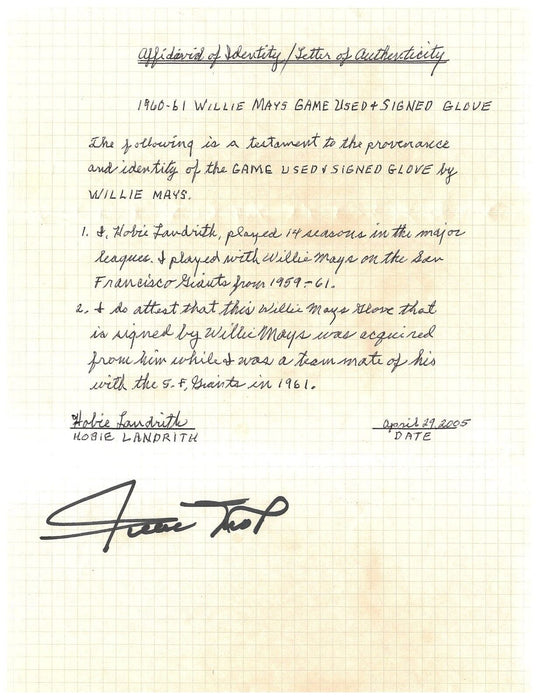 Affidavid of Identity / Letter of Authenticity
1960-61 WILLIE MAYS GAME USED + SIGNED GLOVE
The following is a testament to the provenance
and identity of the GAME USED & SIGNED GLOVE by
WILLIE MAYS.
1. I, Hobie Landrith, played 14 seasons in the major
leagues. I played with Willie Mays on the San
Francisco Giants from 1959-61.
2. I do attest that this Willie Mays Glove that
is signed by Willie Mays was acquired
from him while I was a team mate of his
with the S.F. Giants in 1961.
Hobie Landrith April 29, 2005
HOBIE LANDRITH DATE
Willie Mays